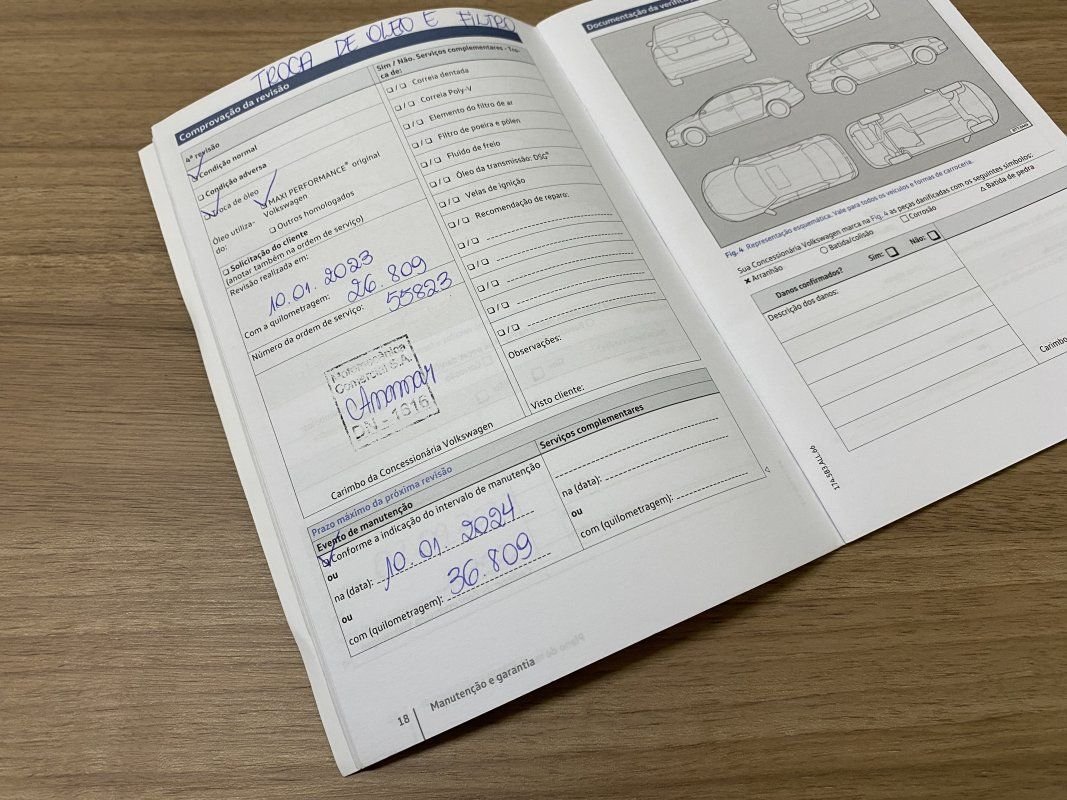 TROCA DE OLEO E FILTRO
Comprovação da revisão
4ª revisão
Condição normal
❑ Condição adversa
Troca de óleo
Óleo utiliza-
do:
MAXI PERFORMANCE® original
Volkswagen
❑ Outros homologados
❑ Solicitação do cliente
(anotar também na ordem de serviço)
Revisão realizada em:
10.01.2023
Com a quilometragem: 26.809
Número da ordem de serviço: 55823
Motomecânica
Comercial S.A.
DN - 1616
Carimbo da Concessionária Volkswagen
Sim / Não. Serviços complementares - Tro-
ca de:
❑ / ❑ Correia dentada
❑ / ❑ Correia Poly-V
❑ / ❑ Elemento do filtro de ar
❑ / ❑ Filtro de poeira e pólen
❑ / ❑ Fluido de freio
❑ / ❑ Óleo da transmissão: DSG®
❑ / ❑ Velas de ignição
❑ / ❑ Recomendação de reparo:
❑ / ❑
❑ / ❑
❑ / ❑
❑ / ❑
❑ / ❑
Observações:
Visto cliente:
Prazo máximo da próxima revisão
Evento de manutenção
Conforme a indicação do intervalo de manutenção
ou
na (data): 10.01.2024
ou
com (quilometragem): 36.809
Serviços complementares
na (data):
ou
com (quilometragem):
18
Manutenção e garantia
Documentação da
Fig. 4 Representação esquemática. Vale para todos os veículos e formas de carroceria.
Sua Concessionária Volkswagen marca na Fig. 4 as peças danificadas com os seguintes símbolos:
✖ Arranhão ○ Batida/colisão □ Corrosão △ Batida de pedra
Danos confirmados? Sim: ❑ Não: ❑
Descrição dos danos:
Carimbo
174.5B3.ALL.66